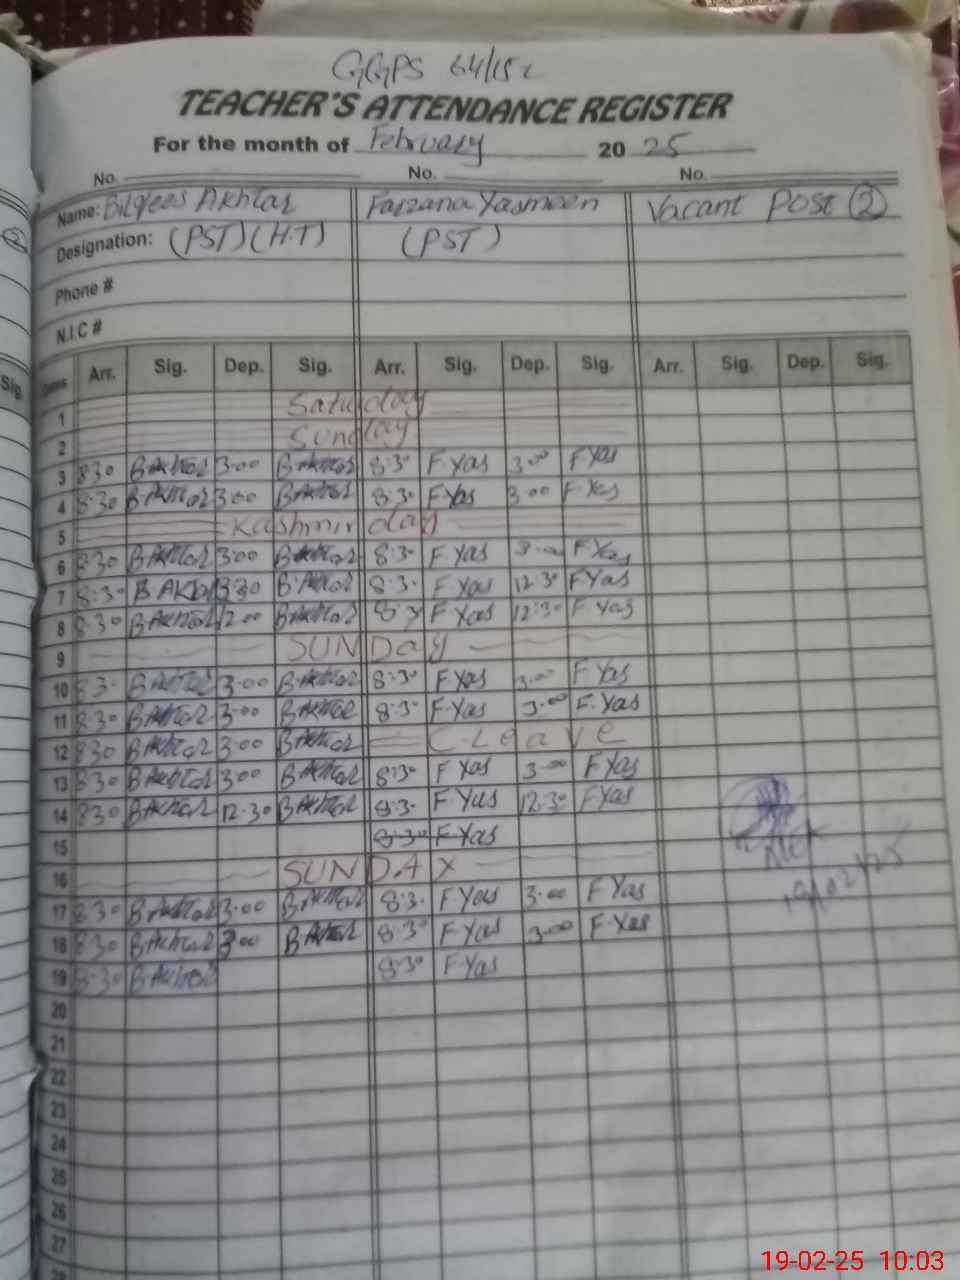 GGPS 64/15L
TEACHER'S ATTENDANCE REGISTER
For the month of February 20 25
No. No. No.
Name: Bilqees Akhtar Farzana Yasmeen Vacant Post 2
Designation: (PST) (H.T) (PST)
Phone #
N.I.C #
Dates Arr. Sig. Dep. Sig. Arr. Sig. Dep. Sig. Arr. Sig. Dep. Sig.
1 Saturday
2 Sunday
3 8:30 BAkhtar 3:00 BAkhtar 8:30 F.Yas 3:00 F.Yas
4 8:30 BAkhtar 3:00 BAkhtar 8:30 F.Yas 3:00 F.Yas
5 Kashmir day
6 8:30 BAkhtar 3:00 BAkhtar 8:30 F.Yas 3:00 F.Yas
7 8:30 BAkhtar BAkhtar 8:30 F.Yas 12:30 F.Yas
8 8:30 BAkhtar 12:00 BAkhtar 8:30 F.Yas 12:30 F.Yas
9 SUNDay
10 8:30 BAkhtar 3:00 BAkhtar 8:30 F.Yas 3:00 F.Yas
11 8:30 BAkhtar 3:00 BAkhtar 8:30 F.Yas 3:00 F.Yas
12 8:30 BAkhtar 3:00 BAkhtar C.Leave
13 8:30 BAkhtar 3:00 BAkhtar 8:30 F.Yas 3:00 F.Yas
14 8:30 BAkhtar 12:30 BAkhtar 8:30 F.Yas 12:30 F.Yas
15 8:30 F.Yas
16 SUNDAY
17 8:30 BAkhtar 3:00 BAkhtar 8:30 F.Yas 3:00 F.Yas
18 8:30 BAkhtar 3:00 BAkhtar 8:30 F.Yas 3:00 F.Yas
19 8:30 BAkhtar 8:30 F.Yas
19/02/25
20
21
22
23
24
25
26
27
28
19-02-25 10:03